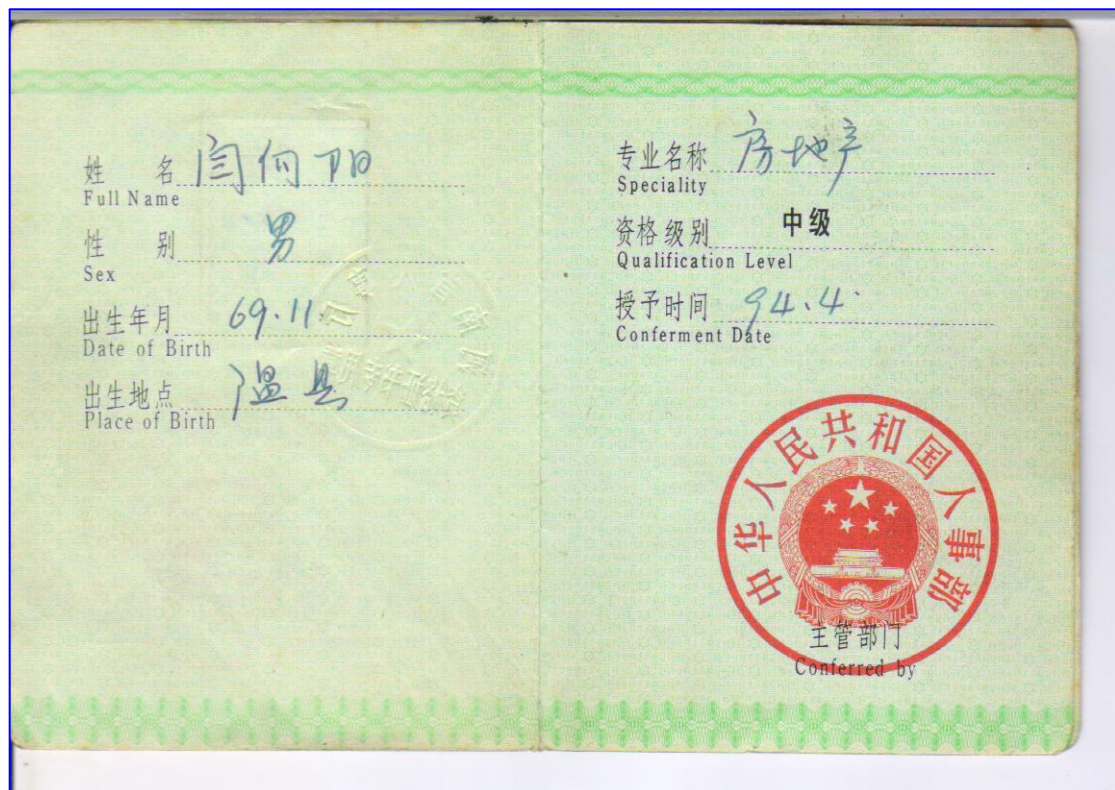 姓 名 闫向阳
Full Name
性 别 男
Sex
出生年月 69.11.
Date of Birth
出生地点 温县
Place of Birth
专业名称 房地产
Speciality
资格级别 中级
Qualification Level
授予时间 94.4.
Conferment Date
中华人民共和国人事部
主管部门
Conferred by